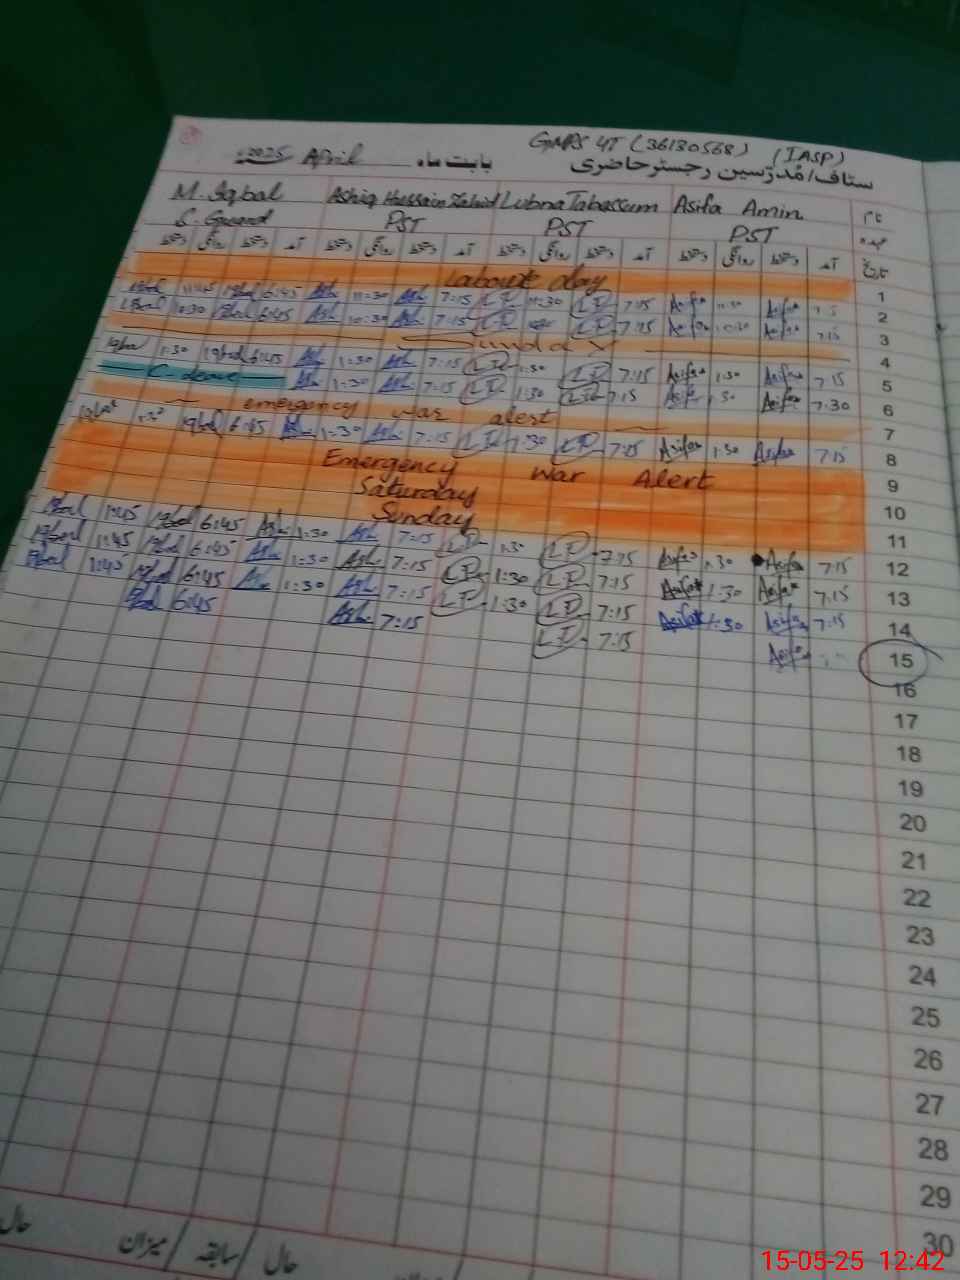 GMPS 4T (36130568) (IASP)
ستاف/مُدرّسین رجسٹر حاضری بابت ماہ April 2025
M. Iqbal Ashiq Hussain Zahid Lubna Tabassum Asifa Amin نام
PST PST PST عہدہ
آمد دستخط روانگی دستخط آمد دستخط روانگی دستخط آمد دستخط روانگی دستخط آمد دستخط روانگی دستخط تاریخ
Laboure day 1
Iqbal 11:45 Iqbal 6:45 Ash 11:30 Ash 7:15 LT 11:30 LT 7:15 Asifa Asifa 2
Iqbal 10:30 Iqbal 6:45 Ash 10:30 Ash 7:15 LT LT 7:15 Asifa Asifa 7:15 3
Sunday 4
Iqbal 1:30 Iqbal 6:45 Ash 1:30 Ash 7:15 LT 1:30 LT 7:15 Asifa 1:30 Asifa 7:15 5
C. leave Ash 1:30 Ash 7:15 LT 1:30 LT 7:15 Asifa Asifa 7:30 6
emergency war alert 7
Iqbal Iqbal 6:45 Ash 1:30 Ash 7:15 LT 1:30 LT 7:15 Asifa 1:30 Asifa 7:15 8
Emergency War Alert 9
Saturday 10
Sunday 11
Iqbal 1:45 Iqbal 6:45 Ash 1:30 Ash 7:15 LT 1:30 LT 7:15 Asifa 1:30 Asifa 7:15 12
Iqbal 1:45 Iqbal 6:45 Ash 1:30 Ash 7:15 LT 1:30 LT 7:15 Asifa 1:30 Asifa 7:15 13
Iqbal 1:45 Iqbal 6:45 Ash 1:30 Ash 7:15 LT 1:30 LT 7:15 Asifa 1:30 Asifa 7:15 14
Iqbal 6:45 Ash 7:15 LT 7:15 Asifa 15
16
17
18
19
20
21
22
23
24
25
26
27
28
29
30
حال سابقہ میزان حال
15-05-25 12:42